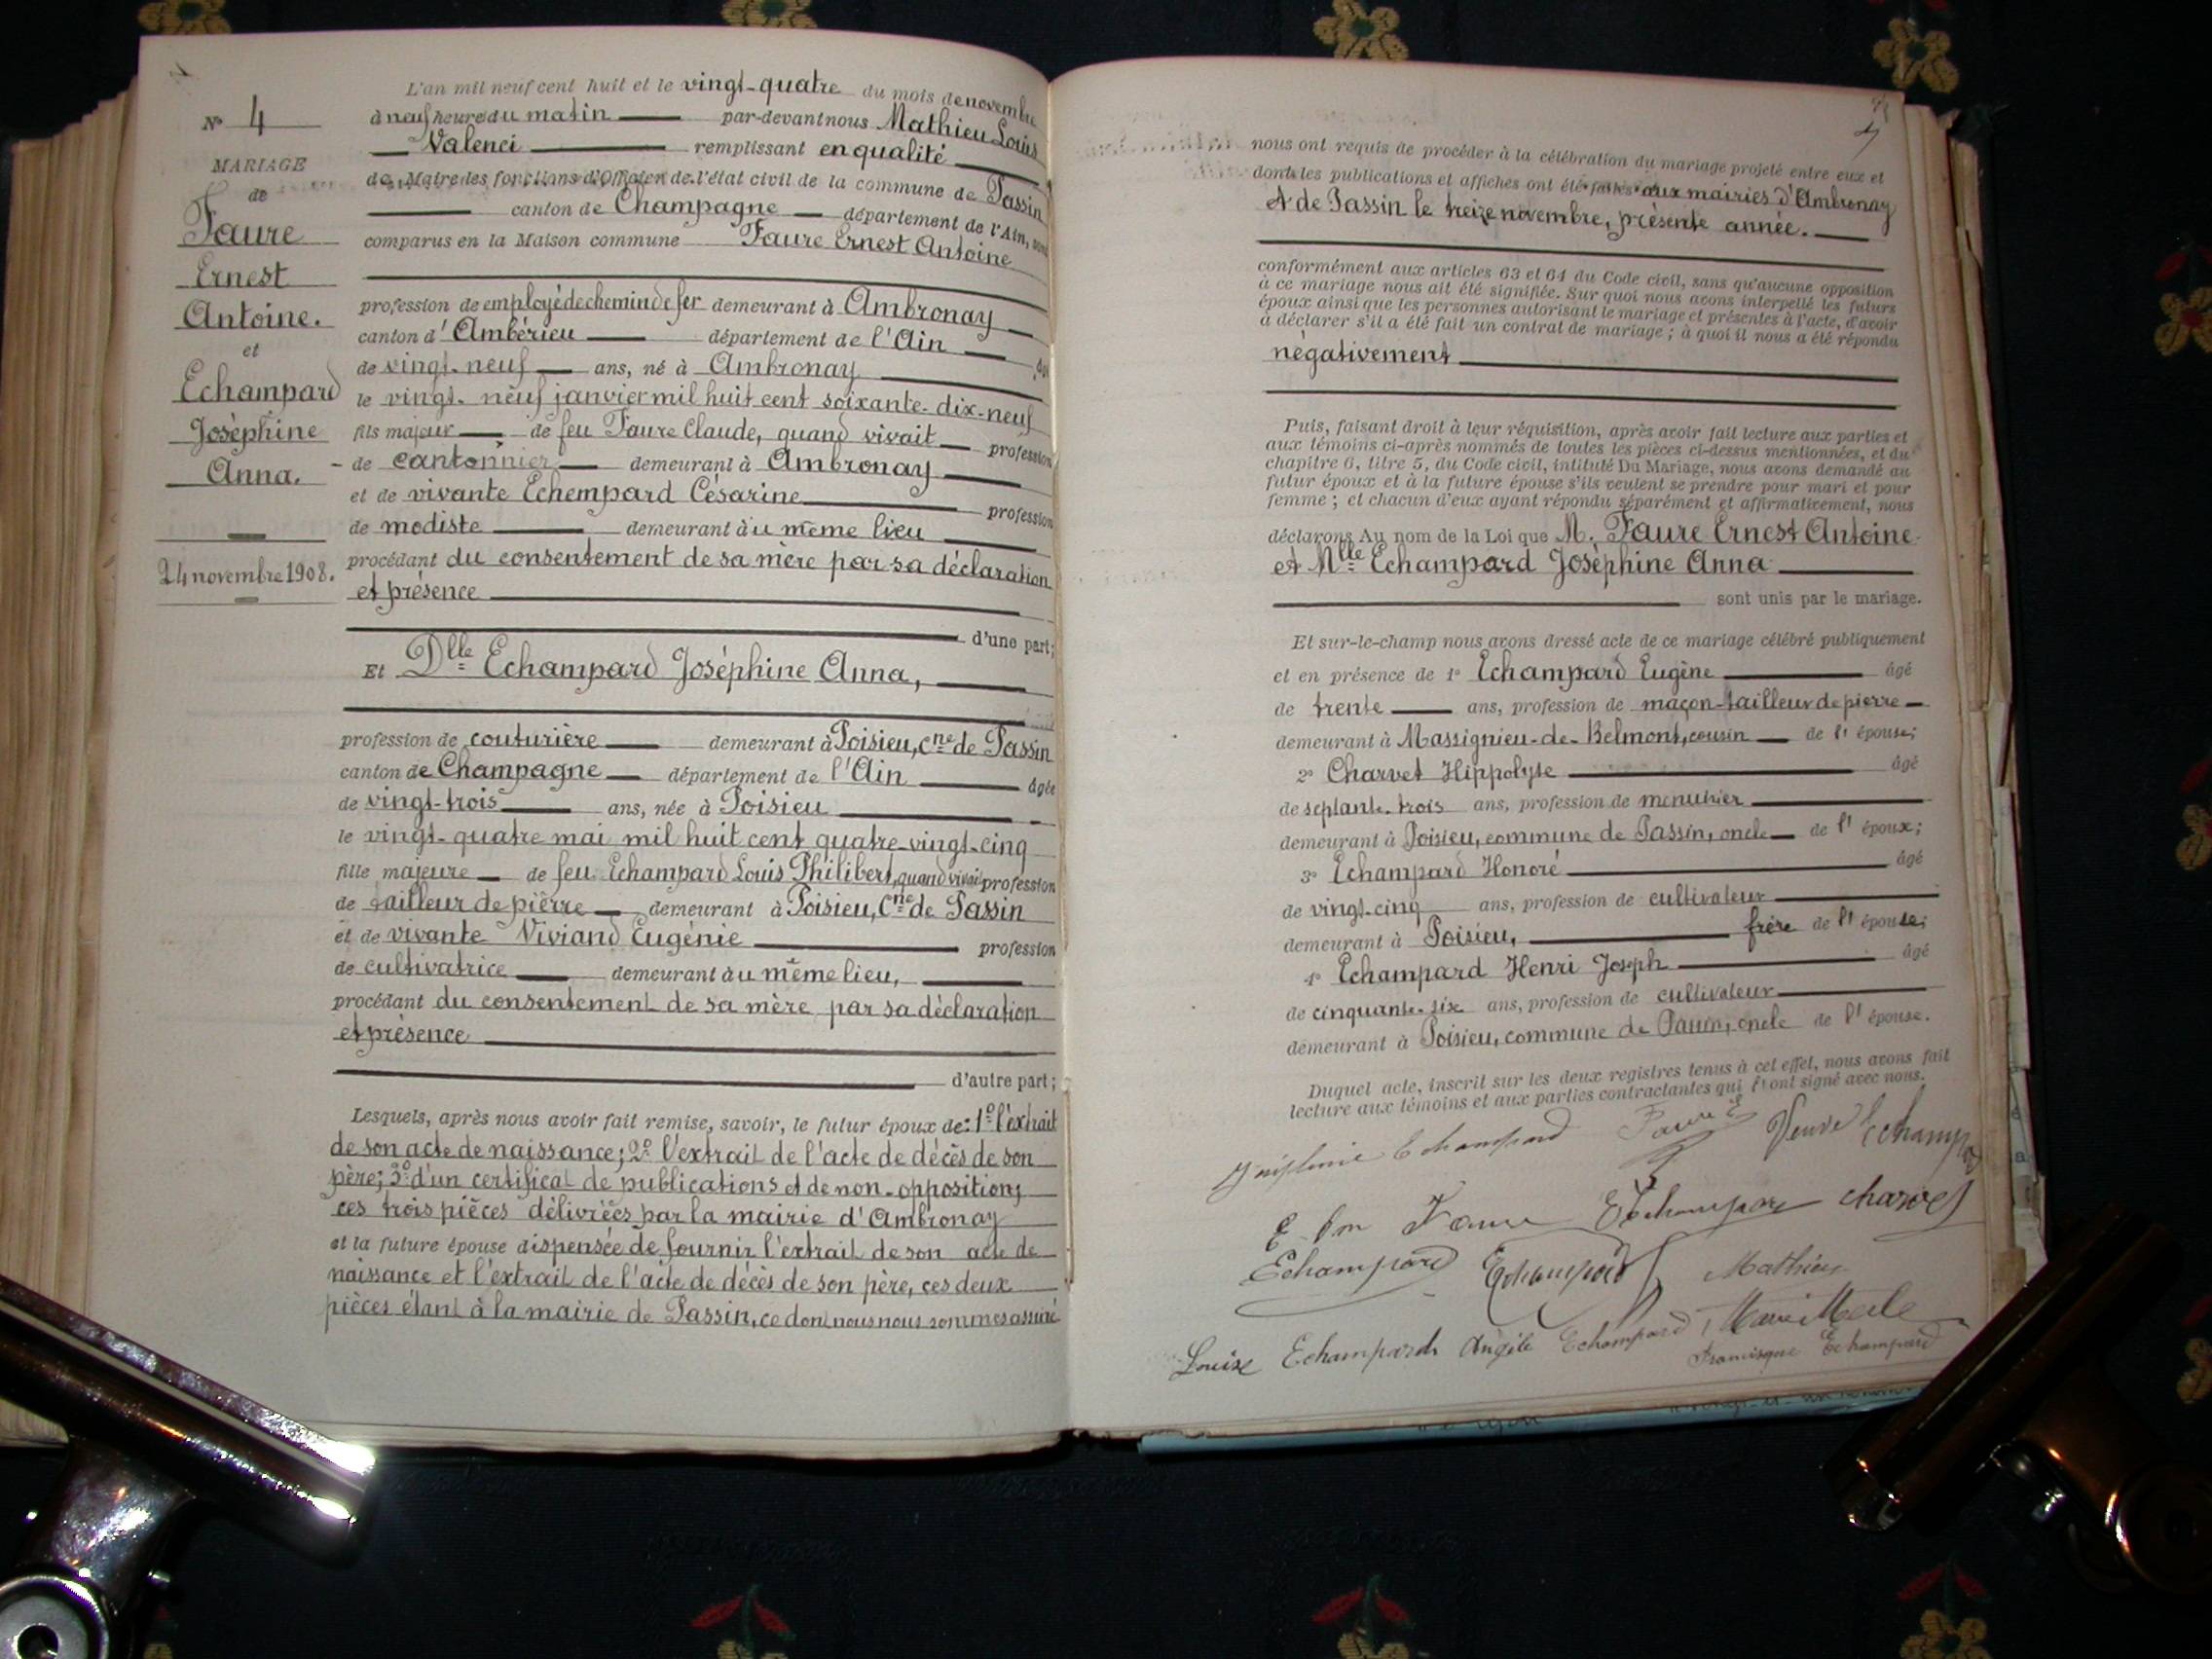 N° 4
MARIAGE
de
Faure
Ernest
Antoine.
et
Echampard
Joséphine
Anna.
24 novembre 1908.
L'an mil neuf cent huit et le vingt-quatre du mois de novembre
à neuf heures du matin par-devant nous Mathieu Louis
Valenci remplissant en qualité
de Maire les fonctions d'Officier de l'état civil de la commune de Passin
canton de Champagne département de l'Ain, sont
comparus en la Maison commune Faure Ernest Antoine
profession de employé de chemin de fer demeurant à Ambronay
canton d'Ambérieu département de l'Ain âgé
de vingt-neuf ans, né à Ambronay
le vingt-neuf janvier mil huit cent soixante-dix-neuf
fils majeur de feu Faure Claude, quand vivait profession
de cantonnier demeurant à Ambronay
et de vivante Echempard Césarine profession
de modiste demeurant àu même lieu
procédant du consentement de sa mère par sa déclaration
et présence
d'une part;
Et Dlle Echampard Joséphine Anna,
profession de couturière demeurant à Poisieu, Cne de Passin
canton de Champagne département de l'Ain âgée
de vingt-trois ans, née à Poisieu
le vingt-quatre mai mil huit cent quatre-vingt-cinq
fille majeure de feu Echampard Louis Philibert, quand vivait profession
de tailleur de pierre demeurant à Poisieu, Cne de Passin
et de vivante Viviand Eugénie profession
de cultivatrice demeurant àu même lieu,
procédant du consentement de sa mère par sa déclaration
et présence
d'autre part;
Lesquels, après nous avoir fait remise, savoir, le futur époux de: 1° l'extrait
de son acte de naissance; 2° l'extrait de l'acte de décès de son
père; 3° d'un certificat de publications et de non-opposition;
ces trois pièces délivrées par la mairie d'Ambronay
et la future épouse dispensée de fournir l'extrait de son acte de
naissance et l'extrait de l'acte de décès de son père, ces deux
pièces étant à la mairie de Passin, ce dont nous nous sommes assuré
nous ont requis de procéder à la célébration du mariage projeté entre eux et
dont les publications et affiches ont été faites aux mairies d'Ambronay
et de Passin le treize novembre, présente année.
conformément aux articles 63 et 64 du Code civil, sans qu'aucune opposition
à ce mariage nous ait été signifiée. Sur quoi nous avons interpellé les futurs
époux ainsi que les personnes autorisant le mariage et présentes à l'acte, d'avoir
à déclarer s'il a été fait un contrat de mariage; à quoi il nous a été répondu
négativement
Puis, faisant droit à leur réquisition, après avoir fait lecture aux parties et
aux témoins ci-après nommés de toutes les pièces ci-dessus mentionnées, et du
chapitre 6, titre 5, du Code civil, intitulé Du Mariage, nous avons demandé au
futur époux et à la future épouse s'ils veulent se prendre pour mari et pour
femme; et chacun d'eux ayant répondu séparément et affirmativement, nous
déclarons Au nom de la Loi que M. Faure Ernest Antoine
et Mlle Echampard Joséphine Anna
sont unis par le mariage.
Et sur-le-champ nous avons dressé acte de ce mariage célébré publiquement
et en présence de 1° Echampard Eugène âgé
de trente ans, profession de maçon-tailleur de pierre
demeurant à Massignieu-de-Belmont, cousin de l'épouse;
2° Charvet Hippolyte âgé
de septante-trois ans, profession de menuisier
demeurant à Poisieu, commune de Passin, oncle de l'époux;
3° Echampard Honoré âgé
de vingt-cinq ans, profession de cultivateur
demeurant à Poisieu, frère de l'épouse;
4° Echampard Henri Joseph âgé
de cinquante-six ans, profession de cultivateur
demeurant à Poisieu, commune de Passin, oncle de l'épouse.
Duquel acte, inscrit sur les deux registres tenus à cet effet, nous avons fait
lecture aux témoins et aux parties contractantes qui l'ont signé avec nous.
Joséphine Echampard Faure E Veuve Echampard
Faure Echampard Charvet
Echampard Echampard Mathieu
Louise Echampard Angèle Echampard Marie Merle
Francisque Echampard